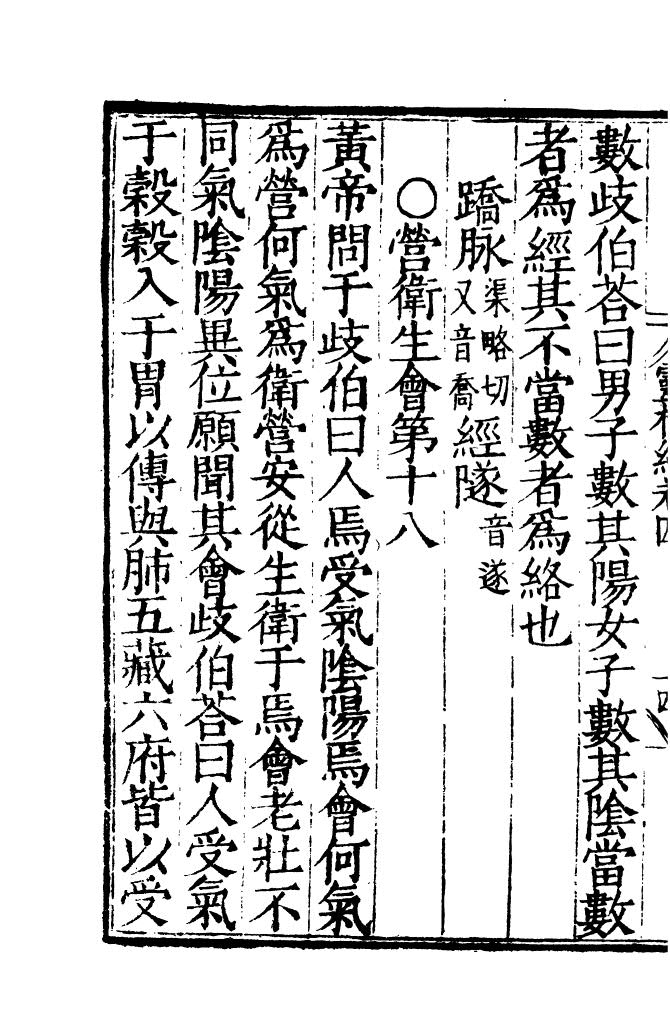 數歧伯荅曰男子數其陽女子數其陰當數
者爲經其不當數者爲絡也
蹻脉渠略切又音喬經隧音遂
○營衛生會第十八
黃帝問于歧伯曰人焉受氣陰陽焉會何氣
爲營何氣爲衛營安從生衛于焉會老壯不
同氣陰陽異位願聞其會歧伯荅曰人受氣
于穀穀入于胃以傳與肺五藏六府皆以受